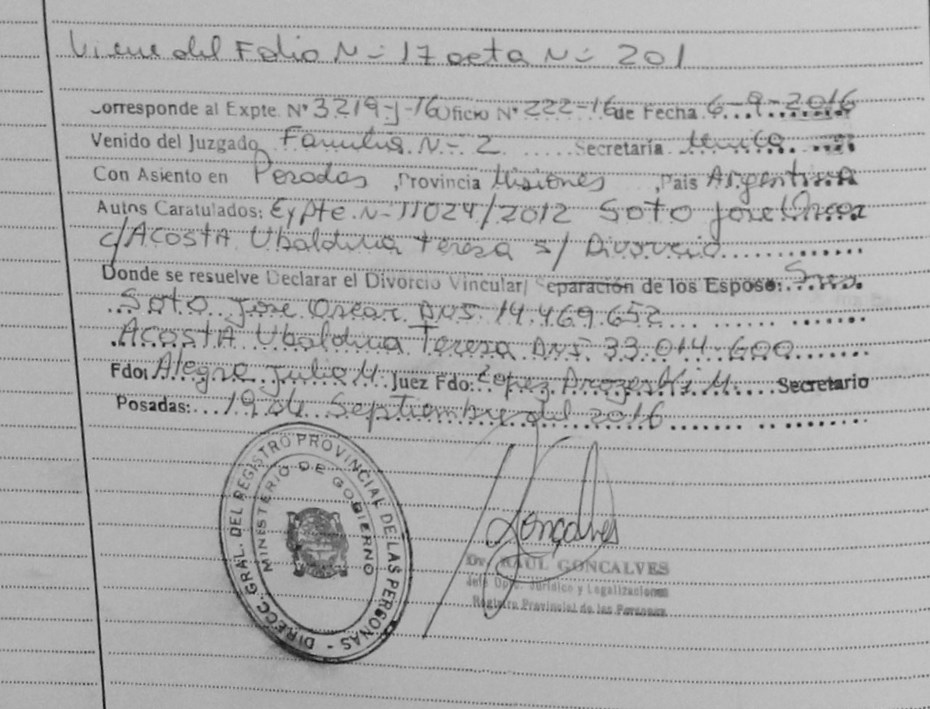 Viene del Folio N- 17 acta N- 201
Corresponde al Expte. N° 3219-J-16 Oficio N° 222-16 de Fecha 6-9-2016
Venido del Juzgado Familia N- 2 Secretaría Unica
Con Asiento en Posadas, Provincia Misiones, País Argentina
Autos Caratulados: Expte. N- 11024/2012 Soto Jose Oscar
c/ Acosta Ubaldina Teresa s/ Divorcio
Donde se resuelve Declarar el Divorcio Vincular/ Separación de los Esposo: Sres.
Soto Jose Oscar DNI 14.469.652
Acosta Ubaldina Teresa DNI 33.014.600
Fdo: Alegre Julio M. Juez Fdo: Lopez M. Secretario
Posadas: 19 de Septiembre del 2016
DIRECC. GRAL. DEL REGISTRO PROVINCIAL DE LAS PERSONAS -
MINISTERIO DE GOBIERNO
Goncalves
Dr. RAUL GONCALVES
Jefe Dpto. Jurídico y Legalizaciones
Registro Provincial de las Personas